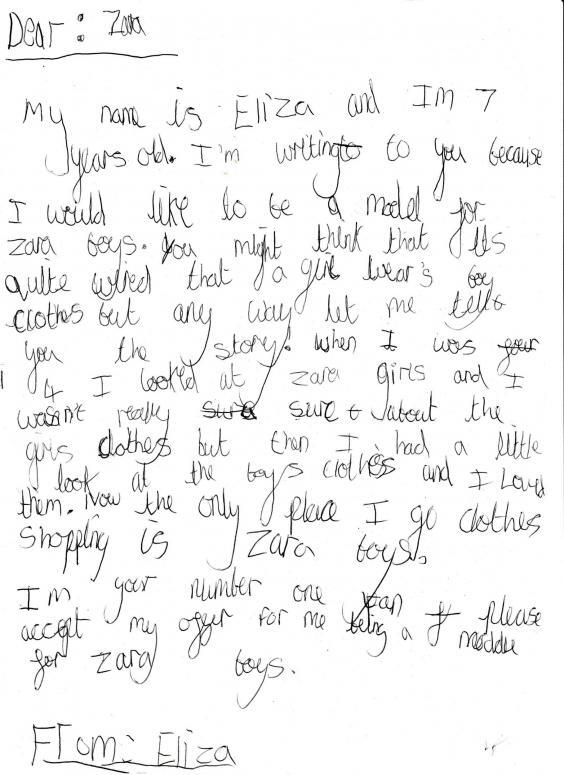 Dear: Zara
My name is Eliza and Im 7
years old. I'm writing to you because
I would like to be a model for
zara boys. You might think that its
quite wired that a girl wear's boy
clothes but any way let me tell
you the story! when I was
4 I looked at zara girls and I
wasn't really sure about the
girls clothes but then I had a little
look at the boys clothes and I Loved
them. Now the only place I go clothes
shopping is Zara boys.
I'm your number one fan please
accept my offer for me being a moddle
for zara boys.
From: Eliza